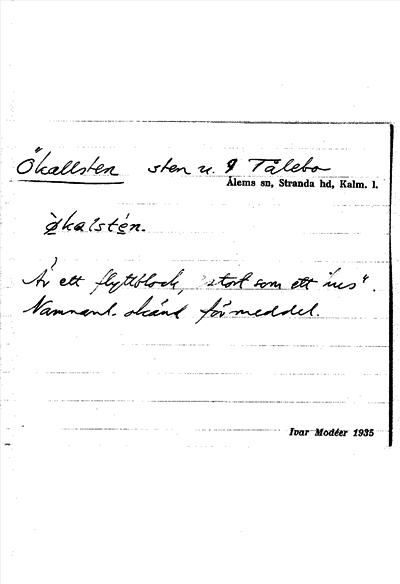 Ökallsten sten u. 9 Tålebo
Ålems sn, Stranda hd, Kalm. l.
ø̀kalstén.
Är ett flyttblock, "stort som ett hus".
Namnanl. okänd för meddel.
Ivar Modéer 1935